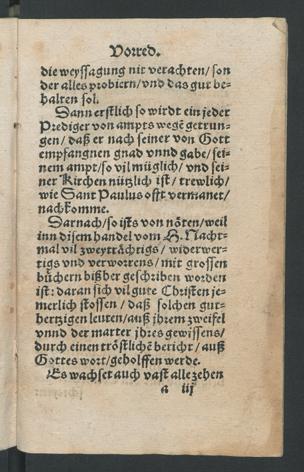 Vorred.
die weyssagung nit verachten/ son
der alles probiern/ vnd das gut be-
halten sol.
Dann erstlich so wirdt ein jeder
Prediger von ampts wegẽ getrun-
gen/ daß er nach seiner von Gott
empfangnen gnad vnnd gabe/ sei-
nem ampt/ so vil müglich/ vnd sei-
ner Kirchen nützlich ist/ trewlich/
wie Sant Paulus offt vermanet/
nachkomme.
Darnach/ so ists von nöten/ weil
inn disem handel vom H. Nacht-
mal vil zweyträchtigs/ widerwer-
tigs vnd verworrens/ mit grossen
büchern bißher geschriben worden
ist: daran sich vil gute Christen je-
merlich stossen/ daß solchen gut-
hertzigen leuten/ auß jhrem zweifel
vnnd der marter jhres gewissens/
durch einen tröstlichẽ bericht/ auß
Gottes wort/ geholffen werde.
Es wachset auch vast alle zehen
a iij